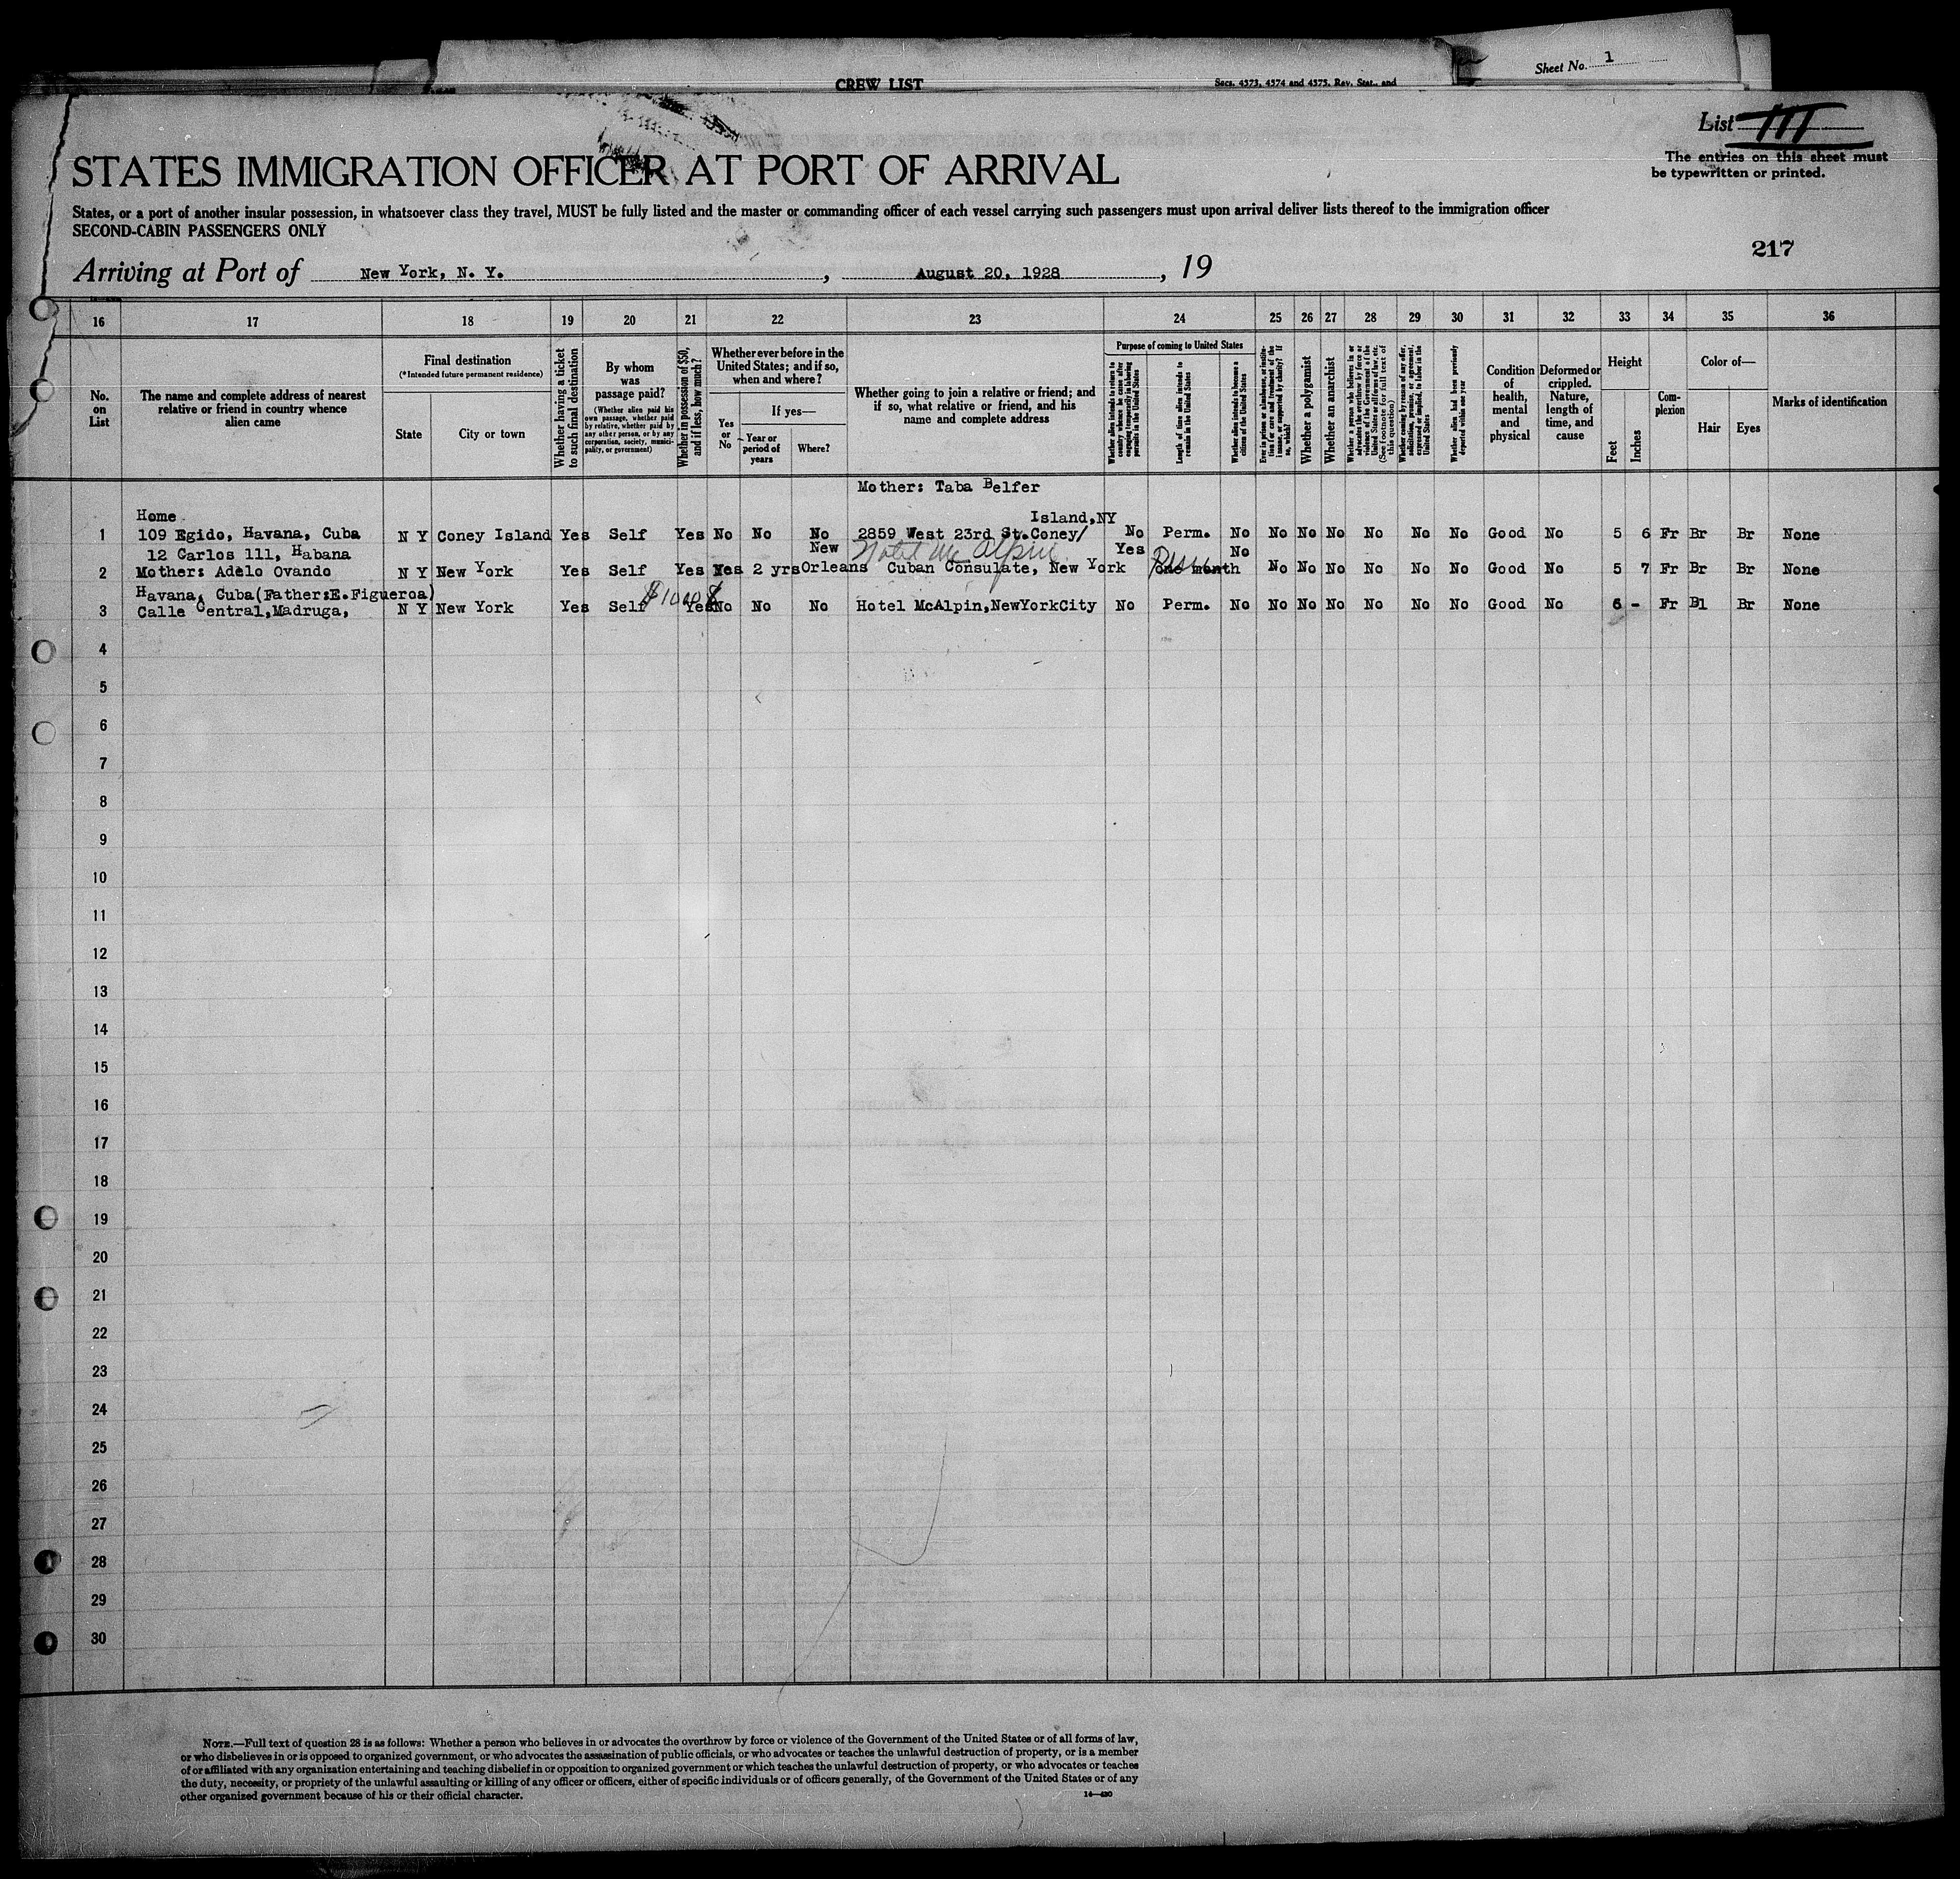 CREW LIST
Secs. 4573, 4574 and 4575, Rev. Stat., and
Sheet No. 1
List III
The entries on this sheet must
be typewritten or printed.
STATES IMMIGRATION OFFICER AT PORT OF ARRIVAL
States, or a port of another insular possession, in whatsoever class they travel, MUST be fully listed and the master or commanding officer of each vessel carrying such passengers must upon arrival deliver lists thereof to the immigration officer
SECOND-CABIN PASSENGERS ONLY
217
Arriving at Port of New York, N. Y. , August 20, 1928 , 19
16 17 18 19 20 21 22 23 24 25 26 27 28 29 30 31 32 33 34 35 36
No.
on
List
The name and complete address of nearest
relative or friend in country whence
alien came
Final destination
(*Intended future permanent residence)
State
City or town
Whether having a ticket
to such final destination
By whom
was
passage paid?
(Whether alien paid his
own passage, whether paid
by relative, whether paid by
any other person, or by any
corporation, society, munici-
pality, or government)
Whether in possession of $50,
and if less, how much?
Whether ever before in the
United States; and if so,
when and where?
Yes
or
No
If yes—
Year or
period of
years
Where?
Whether going to join a relative or friend; and
if so, what relative or friend, and his
name and complete address
Purpose of coming to United States
Whether alien intends to return to
country whence he came after
engaging temporarily in laboring
pursuits in the United States
Length of time alien intends to
remain in the United States
Whether alien intends to become a
citizen of the United States
Ever in prison or almshouse, or institu-
tion for care and treatment of the
insane, or supported by charity? If
so, which?
Whether a polygamist
Whether an anarchist
Whether a person who believes in or
advocates the overthrow by force or
violence of the Government of the
United States or all forms of law, etc.
(See footnote for full text of
this question)
Whether coming by reason of any offer,
solicitation, promise, or agreement,
expressed or implied, to labor in the
United States
Whether alien had been previously
deported within one year
Condition
of
health,
mental
and
physical
Deformed or
crippled.
Nature,
length of
time, and
cause
Height
Feet
Inches
Com-
plexion
Color of—
Hair
Eyes
Marks of identification
Mother: Taba Belfer
Home Island,NY
1 109 Egido, Havana, Cuba N Y Coney Island Yes Self Yes No No No 2859 West 23rd St.Coney/ No Perm. No No No No No No No Good No 5 6 Fr Br Br None
12 Carlos 111, Habana New Hotel Mc Alpin Yes No
2 Mother: Adelo Ovando N Y New York Yes Self Yes Yes 2 yrs Orleans Cuban Consulate, New York one month No No No No No No Good No 5 7 Fr Br Br None
Havana, Cuba(Father:E.Figueroa) $1000
3 Calle Central,Madruga, N Y New York Yes Self Yes No No No Hotel McAlpin,NewYorkCity No Perm. No No No No No No No Good No 6 - Fr Bl Br None
4
5
6
7
8
9
10
11
12
13
14
15
16
17
18
19
20
21
22
23
24
25
26
27
28
29
30
NOTE.—Full text of question 28 is as follows: Whether a person who believes in or advocates the overthrow by force or violence of the Government of the United States or of all forms of law,
or who disbelieves in or is opposed to organized government, or who advocates the assassination of public officials, or who advocates or teaches the unlawful destruction of property, or is a member
of or affiliated with any organization entertaining and teaching disbelief in or opposition to organized government or which teaches the unlawful destruction of property, or who advocates or teaches
the duty, necessity, or propriety of the unlawful assaulting or killing of any officer or officers, either of specific individuals or of officers generally, of the Government of the United States or of any
other organized government because of his or their official character.
14—430